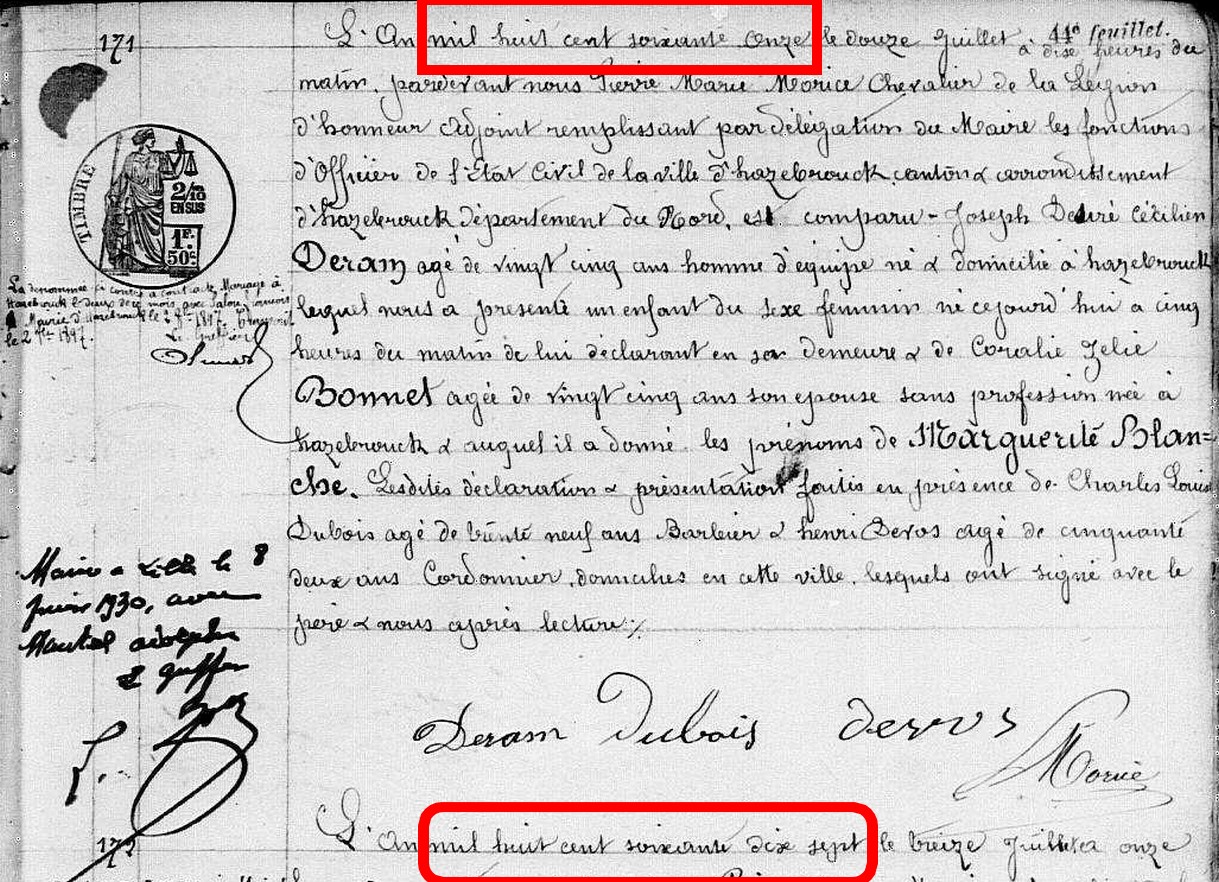 171
L'An mil huit cent soixante onze le douze Juillet à dix heures du
44e feuillet.
matin, pardevant nous Pierre Marie Morice Chevalier de la Légion
d'honneur Adjoint remplissant par délégation du Maire les fonctions
d'Officier de l'État Civil de la ville d'hazebrouck, canton & arrondissement
d'hazebrouck département du Nord, est comparu - Joseph Désiré Cécilien
Deram agé de vingt cinq ans homme d'équipe né & domicilié à hazebrouck
lequel nous a présenté un enfant du sexe feminin né cejourd'hui a cinq
heures du matin de lui déclarant en sa demeure & de Coralie Zelie
Bonnet agée de vingt cinq ans son epouse sans profession née à
hazebrouck & auquel il a donné les prénoms de Marguerite Blan=
che. Lesdites déclaration & présentation faites en présence de Charles Louis
Dubois agé de trente neuf ans Barbier & henri Devos agé de cinquante
deux ans Cordonnier, domiciliés en cette ville, lesquels ont signé avec le
père & nous après lecture
TIMBRE
2/10
EN SUS
1F.
50c
La dénommée ci contre a contracté Mariage à
Hazebrouck le deux de ce mois avec
Mairie d'Hazebrouck le 2 1897.
le 2 1897.
Le Greffier
Marié à Lille le 8
juin 1930, avec
Deram Dubois devos
Morice
172
L'An mil huit cent soixante dix sept le treize Juillet a onze